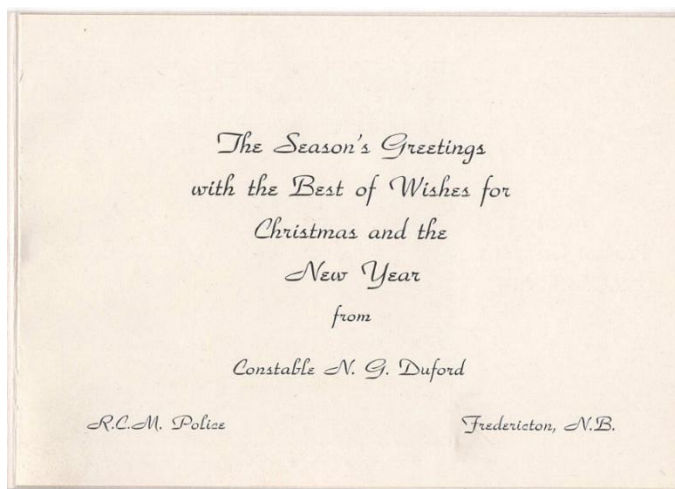 The Season's Greetings
with the Best of Wishes for
Christmas and the
New Year
from
Constable N. G. Duford
R.C.M. Police Fredericton, N.B.